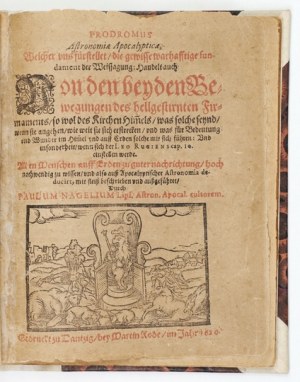 PRODROMUS
Astronomiæ Apocalypticæ,
Welcher uns fürstellet / die gewisse warhafftige fun-
dament die Weissagung: Handelt auch
Von den beyden Be-
wegungen des hellgestirnten Fir-
maments / so wol des Kirchen Himels / was solche seynd /
wenn sie angehen / wie weit sie sich erstrecken / und was für Bedeutung
und Wunder im Himel und auff Erden solche mit sich führen: Und
insonderheit wenn sich der
einstellen werde.
Allen Menschen auff Erden zu guter nachrichtung / hoch
nothwendig zu wissen / und also auß Apocalyptischer Astronomia de-
duciret, mit fleiß beschrieben und außgeführet /
Durch
PAULUM NAGELIUM Lips. Astron. Apocal. cultorem.
Gedruckt zu Dantzig / bey Martin Rode / im Jahr